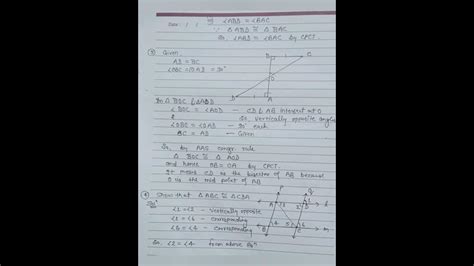 Date: / /
iii) ∠ABD = ∠BAC
∵ △ABD ≅ △BAC
So, ∠ABD = ∠BAC by CPCT.
(3) Given
AD = BC
∠OBC = ∠OAD = 90°
In △BOC & △AOD
∠BOC = ∠AOD — CD & AB intersect at O
So, vertically opposite angles
∠OBC = ∠OAD — 90° each
BC = AD — Given
So, by AAS congr. rule
△ BOC ≅ △ AOD
and hence OB = OA by CPCT.
It means CD is the bisector of AB because
O is the mid point of AB
(4) Show that △ABC ≅ △CDA
∠1 = ∠2 — vertically opposite
∠1 = ∠6 — corresponding
∠6 = ∠4 — corresponding
So ∠2 = ∠4 from above